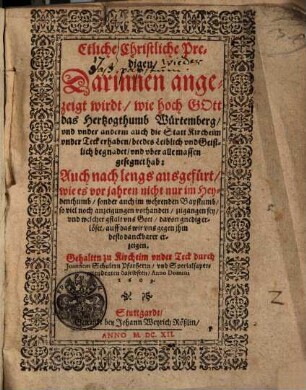 Etliche Christliche Pre-
digen/
Darinnen ange-
zeigt wirdt/ wie hoch GOtt
das Hertzogthumb Würtemberg/
vnd vnder anderm auch die Statt Kircheim
vnder Teck erhaben/ bedes leiblich vnd Geist-
lich begnadet/ vnd vber alle massen
gesegnet hab:
Auch nach lengs außgefürt/
wie es vor jahren nicht nur im Hey-
denthumb/ sonder auch im wehrenden Bapstumb/
so viel noch anzeigungen vorhanden/ zugangen sey/
vnd welcher gstalt vns Gott/ davon gnedig er-
löset, auff das wir vns gegen ihm
desto danckbarer er-
zeigen.
Gehalten zu Kircheim vnder Teck durch
Pfarrern/ vnd
Anno Domini
1609.
Stuttgardt/
bey Johann Weyrich Rößlin/
ANNO M. DC. XII.